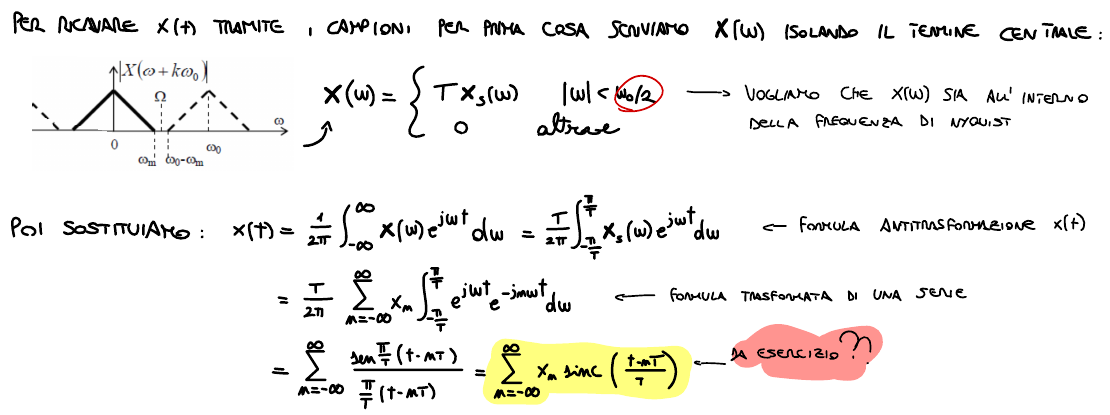 PER RICAVARE X(t) TRAMITE I CAMPIONI PER PRIMA COSA SCRIVIAMO X(ω) ISOLANDO IL TERMINE CENTRALE:
|X(ω+kω₀)|
Ω
X(ω) = { T Xₛ(ω) |ω| < ω₀/2 → VOGLIAMO CHE X(ω) SIA ALL'INTERNO
0 altrove DELLA FREQUENZA DI NYQUIST
ω
0 ωₘ ω₀-ωₘ ω₀
POI SOSTITUIAMO: x(t) = 1/2π ∫_{-∞}^{∞} X(ω) e^{jωt} dω = T/2π ∫_{-π/T}^{π/T} Xₛ(ω) e^{jωt} dω ← FORMULA ANTITRASFORMAZIONE x(t)
= T/2π ∑_{n=-∞}^{∞} xₙ ∫_{-π/T}^{π/T} e^{jωt} e^{-jnωt} dω ← FORMULA TRASFORMATA DI UNA SERIE
= ∑_{n=-∞}^{∞} sen π/T (t-nT) / π/T (t-nT) = ∑_{n=-∞}^{∞} xₙ sinc ( t-nT / T ) ← DA ESERCIZIO ??